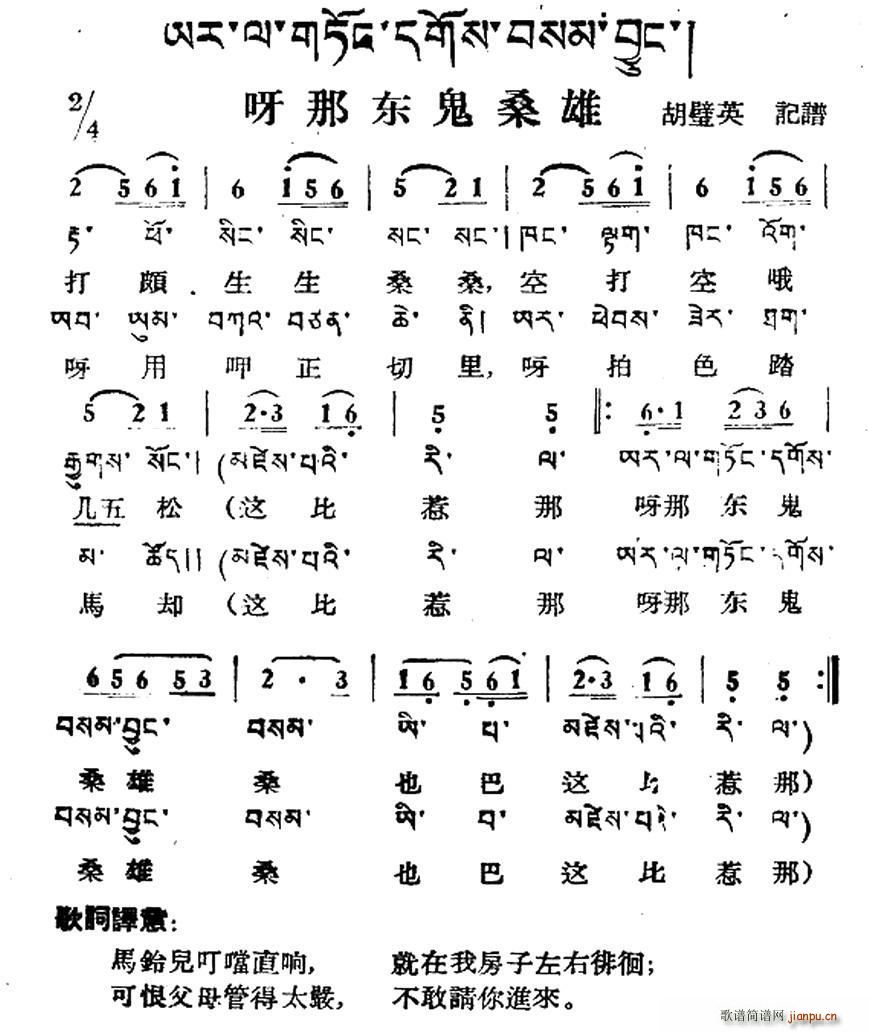 ཨར་ལ་གཏོང་དགོས་བསམ་བྱུང་།
2/4 呀那东鬼桑雄 胡璧英 記譜
2 5 6 1 | 6 1 5 6 | 5 2 1 | 2 5 6 1 | 6 1 5 6 |
རྟ་ ཕོ་ སིང་ སིང་ སང་ སང་། ཁང་ ལྟག་ ཁང་ འོག་
打頗生生桑桑,空打空哦
ཨབ་ ཡུམ་ བཀའ་ བཙན་ ཆེ་ ནི། ཨར་ ཕེབས་ ཟེར་ ཐག་
呀用呷正切里,呀拍色踏
5 2 1 | 2·3 1 6 | 5 5 ‖: 6·1 2 3 6 |
རྒྱུགས་ སོང་། (མཛེས་པའི་ རི་ ལ་ ཨར་ལ་གཏོང་དགོས་
几五松(这比惹那 呀那东鬼
མ་ ཚོད།། (མཛེས་པའི་ རི་ ལ་ ཨར་ལ་གཏོང་དགོས་
馬却(这比惹那 呀那东鬼
6 5 6 5 3 | 2 · 3 | 1 6 5 6 1 | 2·3 1 6 | 5 5 :‖
བསམ་བྱུང་ བསམ་ ཨི་ པ་ མཛེས་པའི་ རི་ ལ་)
桑雄桑也巴这比惹那)
བསམ་བྱུང་ བསམ་ ཨི་ པ་ མཛེས་པའི་ རི་ ལ་)
桑雄桑也巴这比惹那)
歌詞譯意:
馬鈴兒叮噹直响, 就在我房子左右徘徊;
可恨父母管得太嚴, 不敢請你進來。
歌谱简谱网 jianpu.cn